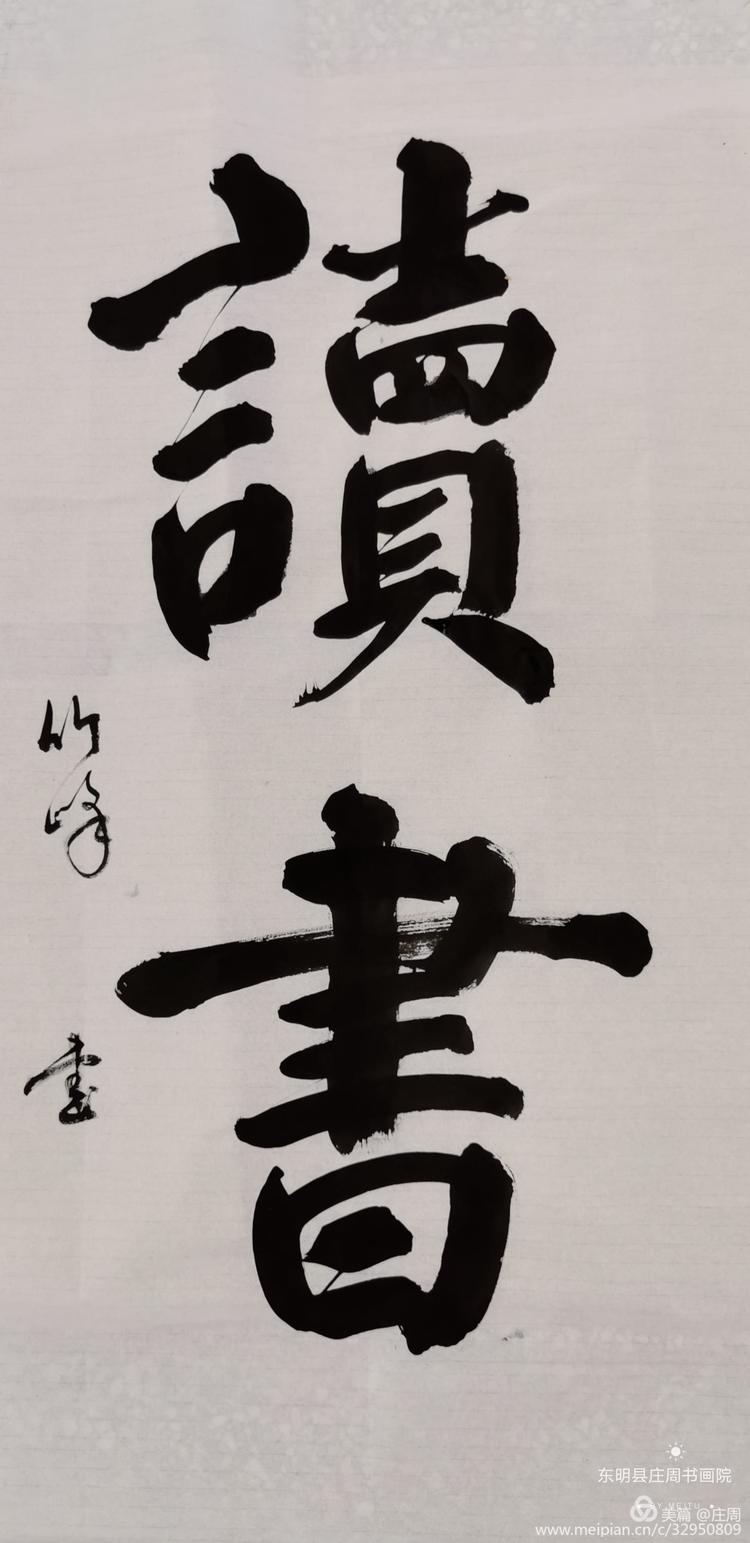 讀書
竹峰書
东明县庄周书画院
BY MEITU
美篇 @庄周
www.meipian.cn/c/32950809